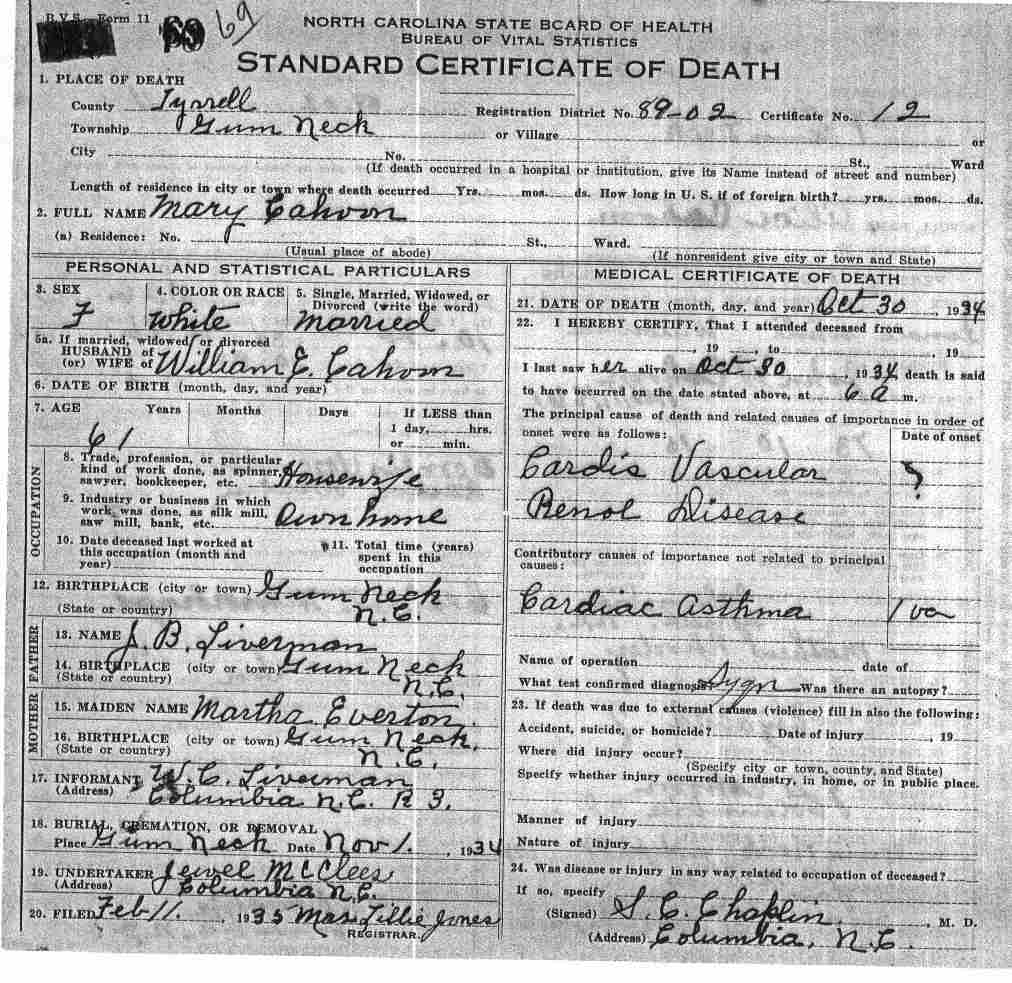 B.V.S. Form 11
69
NORTH CAROLINA STATE BOARD OF HEALTH
BUREAU OF VITAL STATISTICS
STANDARD CERTIFICATE OF DEATH
1. PLACE OF DEATH
County Tyrrell Registration District No. 89-02 Certificate No. 12
Township Gum Neck or Village or
City No. St., Ward
(If death occurred in a hospital or institution, give its Name instead of street and number)
Length of residence in city or town where death occurred Yrs. mos. ds. How long in U. S. if of foreign birth? yrs. mos. ds.
2. FULL NAME Mary Cahoon
(a) Residence: No. St., Ward.
(Usual place of abode) (If nonresident give city or town and State)
PERSONAL AND STATISTICAL PARTICULARS
3. SEX 4. COLOR OR RACE 5. Single, Married, Widowed, or
Divorced (write the word)
F White Married
5a. If married, widowed or divorced
HUSBAND of
(or) WIFE of William E. Cahoon
6. DATE OF BIRTH (month, day, and year)
7. AGE Years Months Days If LESS than
1 day, hrs.
or min.
61
OCCUPATION
8. Trade, profession, or particular
kind of work done, as spinner,
sawyer, bookkeeper, etc. Housewife
9. Industry or business in which
work was done, as silk mill,
saw mill, bank, etc. Own home
10. Date deceased last worked at
this occupation (month and
year)
11. Total time (years)
spent in this
occupation
12. BIRTHPLACE (city or town) Gum Neck
(State or country) N.C.
FATHER
13. NAME J. B. Liverman
14. BIRTHPLACE (city or town) Gum Neck
(State or country) N.C.
MOTHER
15. MAIDEN NAME Martha Everton
16. BIRTHPLACE (city or town) Gum Neck,
(State or country) N.C.
17. INFORMANT W. C. Liverman
(Address) Columbia N.C. R 3.
18. BURIAL, CREMATION, OR REMOVAL
Place Gum Neck Date Nov 1. , 1934
19. UNDERTAKER Jewel McClees
(Address) Columbia N.C.
20. FILED Feb 11. , 1935 Mrs. Lillie Jones
REGISTRAR.
MEDICAL CERTIFICATE OF DEATH
21. DATE OF DEATH (month, day, and year) Oct 30 , 1934
22. I HEREBY CERTIFY, That I attended deceased from
, 19 , to , 19
I last saw her alive on Oct 30 , 1934 death is said
to have occurred on the date stated above, at 6 a m.
The principal cause of death and related causes of importance in order of
onset were as follows: Date of onset
Cardio Vascular ?
Renal Disease
Contributory causes of importance not related to principal
causes:
Cardiac Asthma 1
Name of operation date of
What test confirmed diagnosis? Was there an autopsy?
23. If death was due to external causes (violence) fill in also the following:
Accident, suicide, or homicide? Date of injury , 19
Where did injury occur?
(Specify city or town, county, and State)
Specify whether injury occurred in industry, in home, or in public place.
Manner of injury
Nature of injury
24. Was disease or injury in any way related to occupation of deceased?
If so, specify
(Signed) S. C. Chaplin , M. D.
(Address) Columbia, N.C.